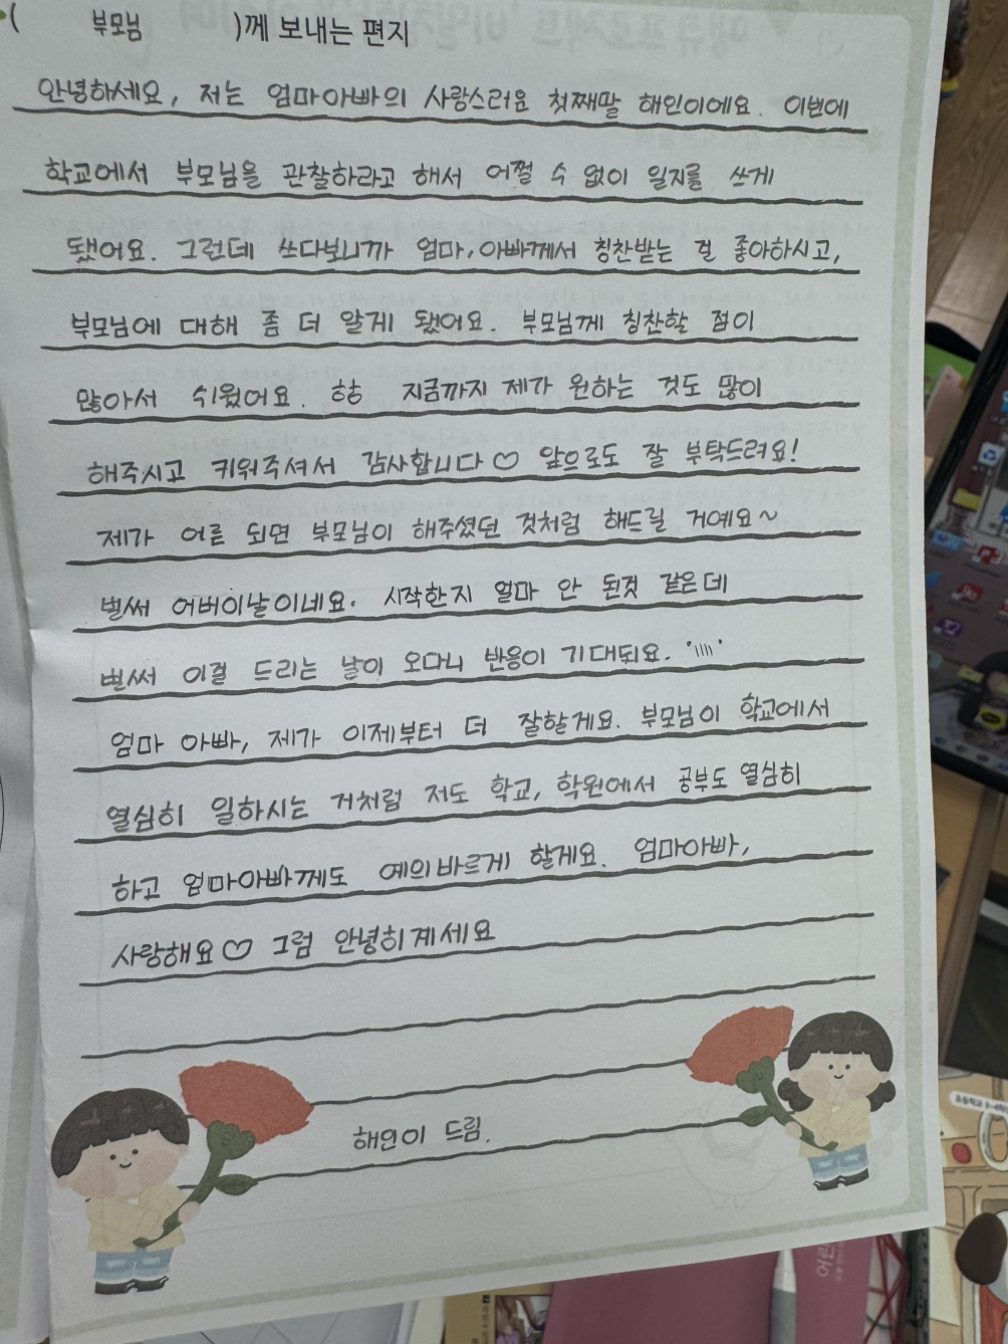 ( 부모님 )께 보내는 편지
안녕하세요, 저는 엄마아빠의 사랑스러요 첫째딸 해인이에요. 이번에
학교에서 부모님을 관찰하라고 해서 어쩔 수 없이 일지를 쓰게
됐어요. 그런데 쓰다보니까 엄마,아빠께서 칭찬받는 걸 좋아하시고,
부모님에 대해 좀 더 알게 됐어요. 부모님께 칭찬할 점이
많아서 쉬웠어요. ㅎㅎ 지금까지 제가 원하는 것도 많이
해주시고 키워주셔서 감사합니다♡ 앞으로도 잘 부탁드려요!
제가 어른 되면 부모님이 해주셨던 것처럼 해드릴 거예요~
벌써 어버이날이네요. 시작한지 얼마 안 된것 같은데
벌써 이걸 드리는 날이 오다니 반응이 기대되요.
엄마 아빠, 제가 이제부터 더 잘할게요. 부모님이 학교에서
열심히 일하시는 거처럼 저도 학교, 학원에서 공부도 열심히
하고 엄마아빠께도 예의바르게 할게요. 엄마아빠,
사랑해요♡ 그럼 안녕히계세요
해인이 드림.